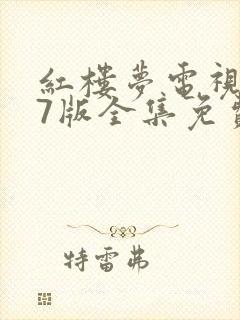 紅樓夢電視
7版全集免
特雷弗